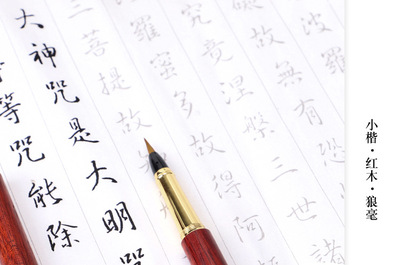 小楷·红木·狼毫
波羅
故無有恐
究竟涅槃三世諸
羅蜜多故得阿
三菩提故
大神咒是大明咒
等等咒能除